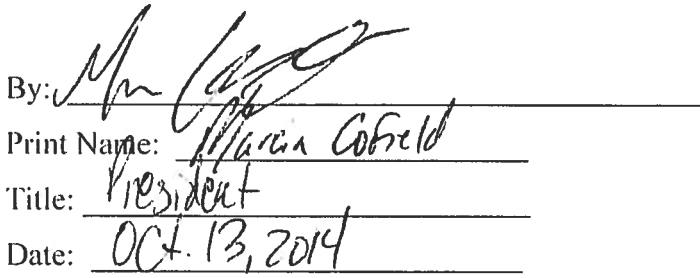 By:
Print Name: Marcia Cofield
Title: President
Date: Oct. 13, 2014